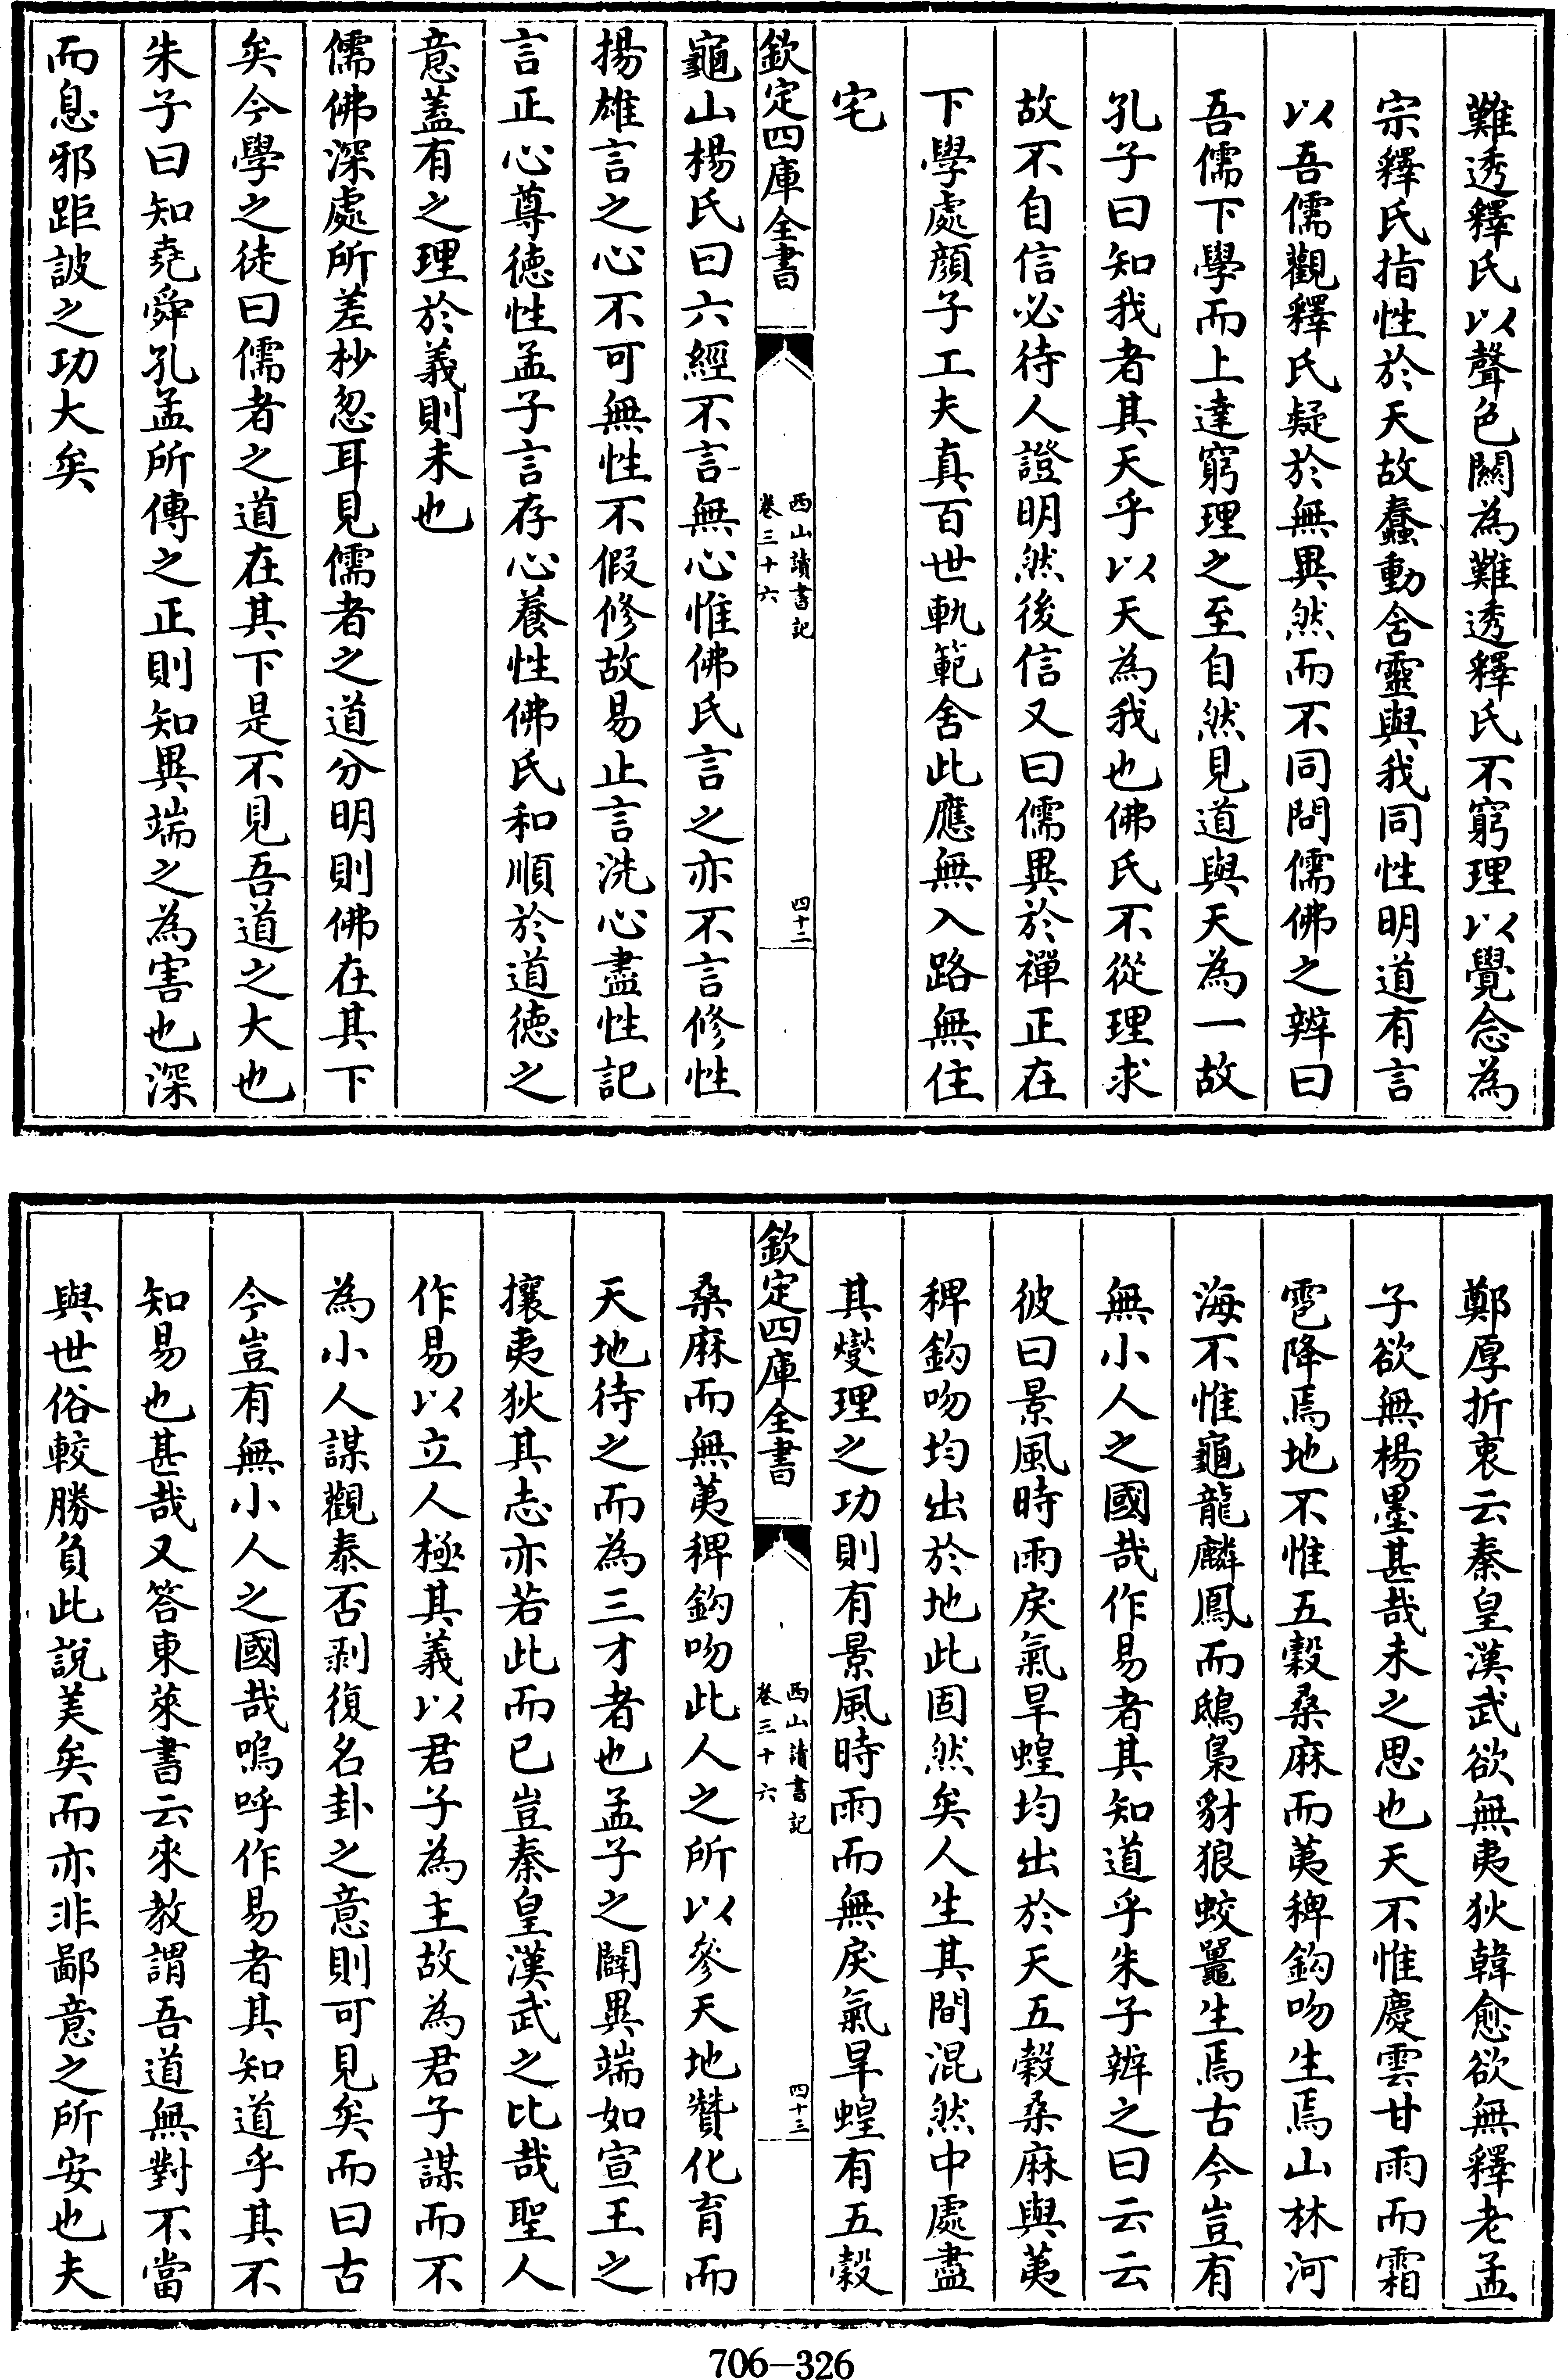 難透釋氏以聲色關為難透釋氏不窮理以覺念為
宗釋氏指性於天故蠢動含靈與我同性明道有言
以吾儒觀釋氏疑於無異然而不同問儒佛之辨曰
吾儒下學而上達窮理之至自然見道與天為一故
孔子曰知我者其天乎以天為我也佛氏不從理求
故不自信必待人證明然後信又曰儒異於禪正在
下學處顔子工夫真百世軌範舍此應無入路無住
宅
欽定四庫全書
西山讀書記
卷三十六
四十二
龜山楊氏曰六經不言無心惟佛氏言之亦不言修性
揚雄言之心不可無性不假修故易止言洗心盡性記
言正心尊徳性孟子言存心養性佛氏和順於道徳之
意葢有之理於義則未也
儒佛深處所差杪忽耳見儒者之道分明則佛在其下
矣今學之徒曰儒者之道在其下是不見吾道之大也
朱子曰知堯舜孔孟所傳之正則知異端之為害也深
而息邪距詖之功大矣
鄭厚折衷云秦皇漢武欲無夷狄韓愈欲無釋老孟
子欲無楊墨甚哉未之思也天不惟慶雲甘雨而霜
雹降焉地不惟五榖桑麻而荑稗鈎吻生焉山林河
海不惟龜龍麟鳳而鴟梟豺狼蛟鼉生焉古今豈有
無小人之國哉作易者其知道乎朱子辨之曰云云
彼曰景風時雨戾氣旱蝗均出於天五榖桑麻與荑
稗鈎吻均出於地此固然矣人生其間混然中處盡
其燮理之功則有景風時雨而無戾氣旱蝗有五榖
欽定四庫全書
西山讀書記
卷三十六
四十三
桑麻而無荑稗鈎吻此人之所以參天地贊化育而
天地待之而為三才者也孟子之闢異端如宣王之
攘夷狄其志亦若此而已豈秦皇漢武之比哉聖人
作易以立人極其義以君子為主故為君子謀而不
為小人謀觀泰否剥復名卦之意則可見矣而曰古
今豈有無小人之國哉嗚呼作易者其知道乎其不
知易也甚哉又答東萊書云來教謂吾道無對不當
與世俗較勝負此說美矣而亦非鄙意之所安也夫
706-326